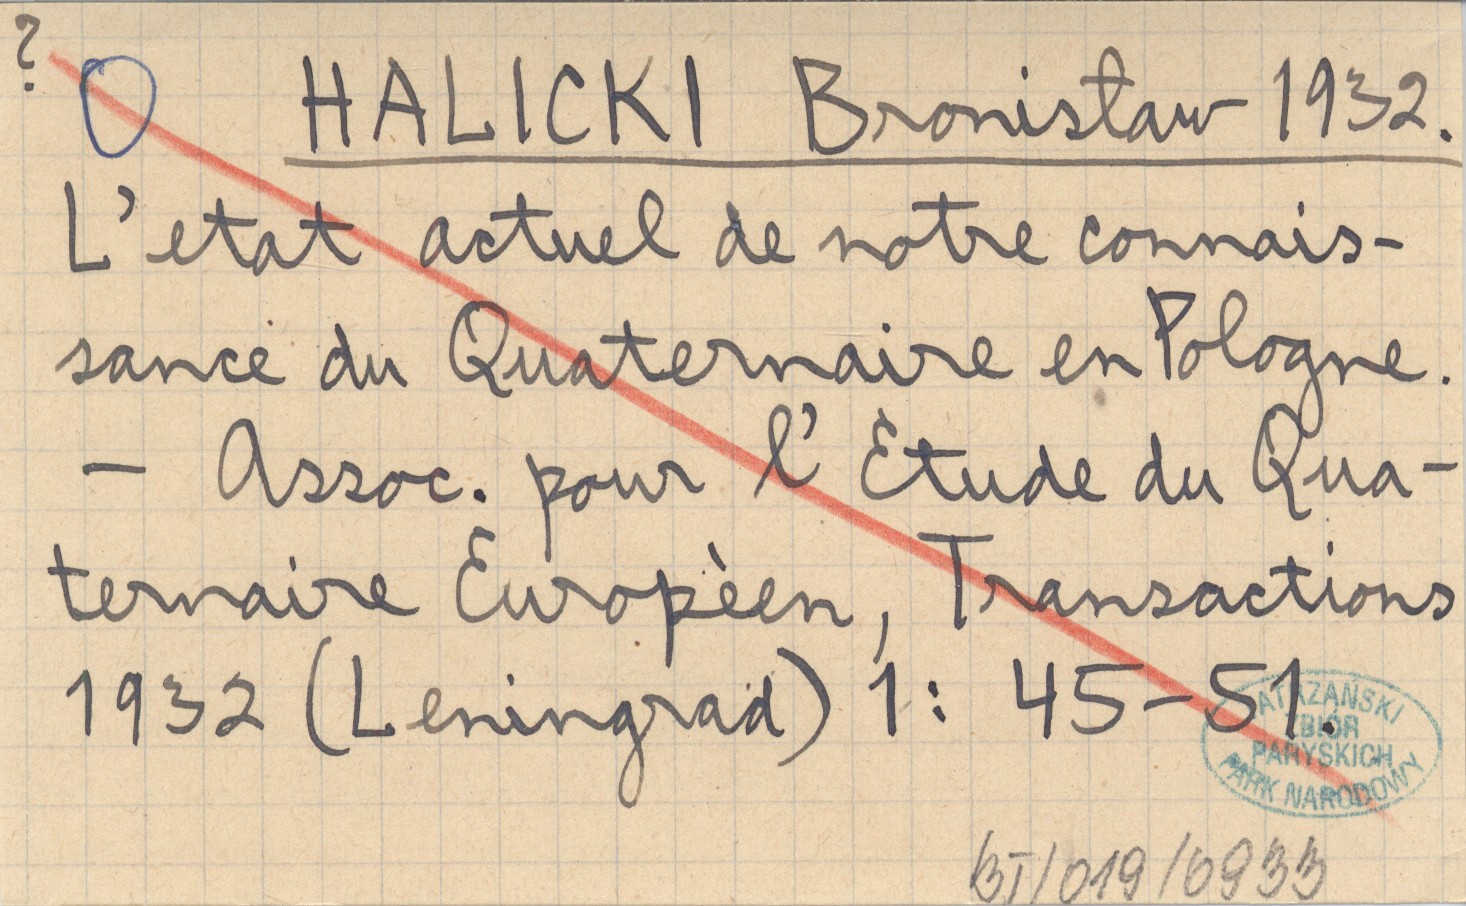 ?
O HALICKI Bronisław 1932.
L'etat actuel de notre connais-
sance du Quaternaire en Pologne.
– Assoc. pour l'Ètude du Qua-
ternaire Europèen, Transactions
1932 (Leningrad) 1: 45-51.
TATRZAŃSKI
ZBIÓR
PARYSKICH
PARK NARODOWY
BT/019/6933